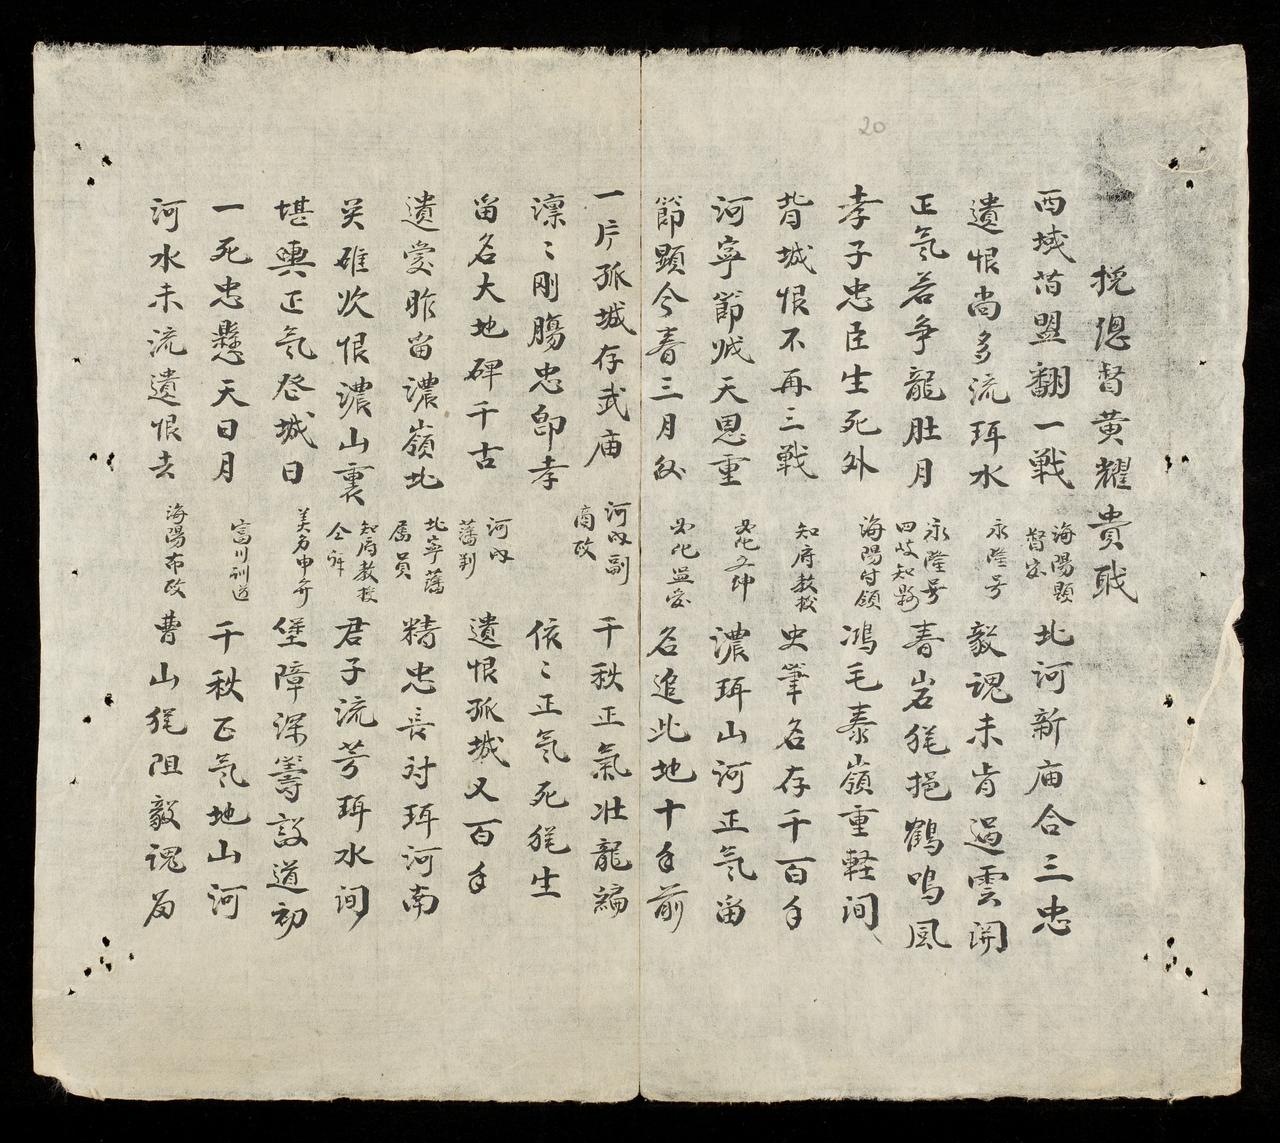 20
挽總督黃耀貴職
西域前盟翻一戰 海陽顯督家 北河新庙合三忠
遺恨尚多流珥水 永隆号 毅魂未肯過雲開
正氣若争龍肚月 永隆号四岐知縣 春岩猶挹鶴鳴風
孝子忠臣生死外 海陽付領 鴻毛泰嶺重輕间
背城恨不再三戰 知府教授 史筆名存千百年
河寧節烕天思重 濃珥山河正氣畄
節顯今春三月後 名追此地十年前
一片孤城存武庙 河内副商政 千秋正氣壮龍編
凛〻刚腸忠卽孝 依〻正氣死猶生
畄名大地碑千古 河内藩判 遺恨孤城又百年
遺愛昨畄濃嶺北 北寧藩属員 精忠長对珥河南
英雄次恨濃山裏 知府教授 君子流芳珥水间
堪輿正氣登城日 堡障深籌設道初
一死忠懸天日月 富川訓道 千秋正氣地山河
河水未流遺恨去 海陽布政 曹山猶阻毅魂歸